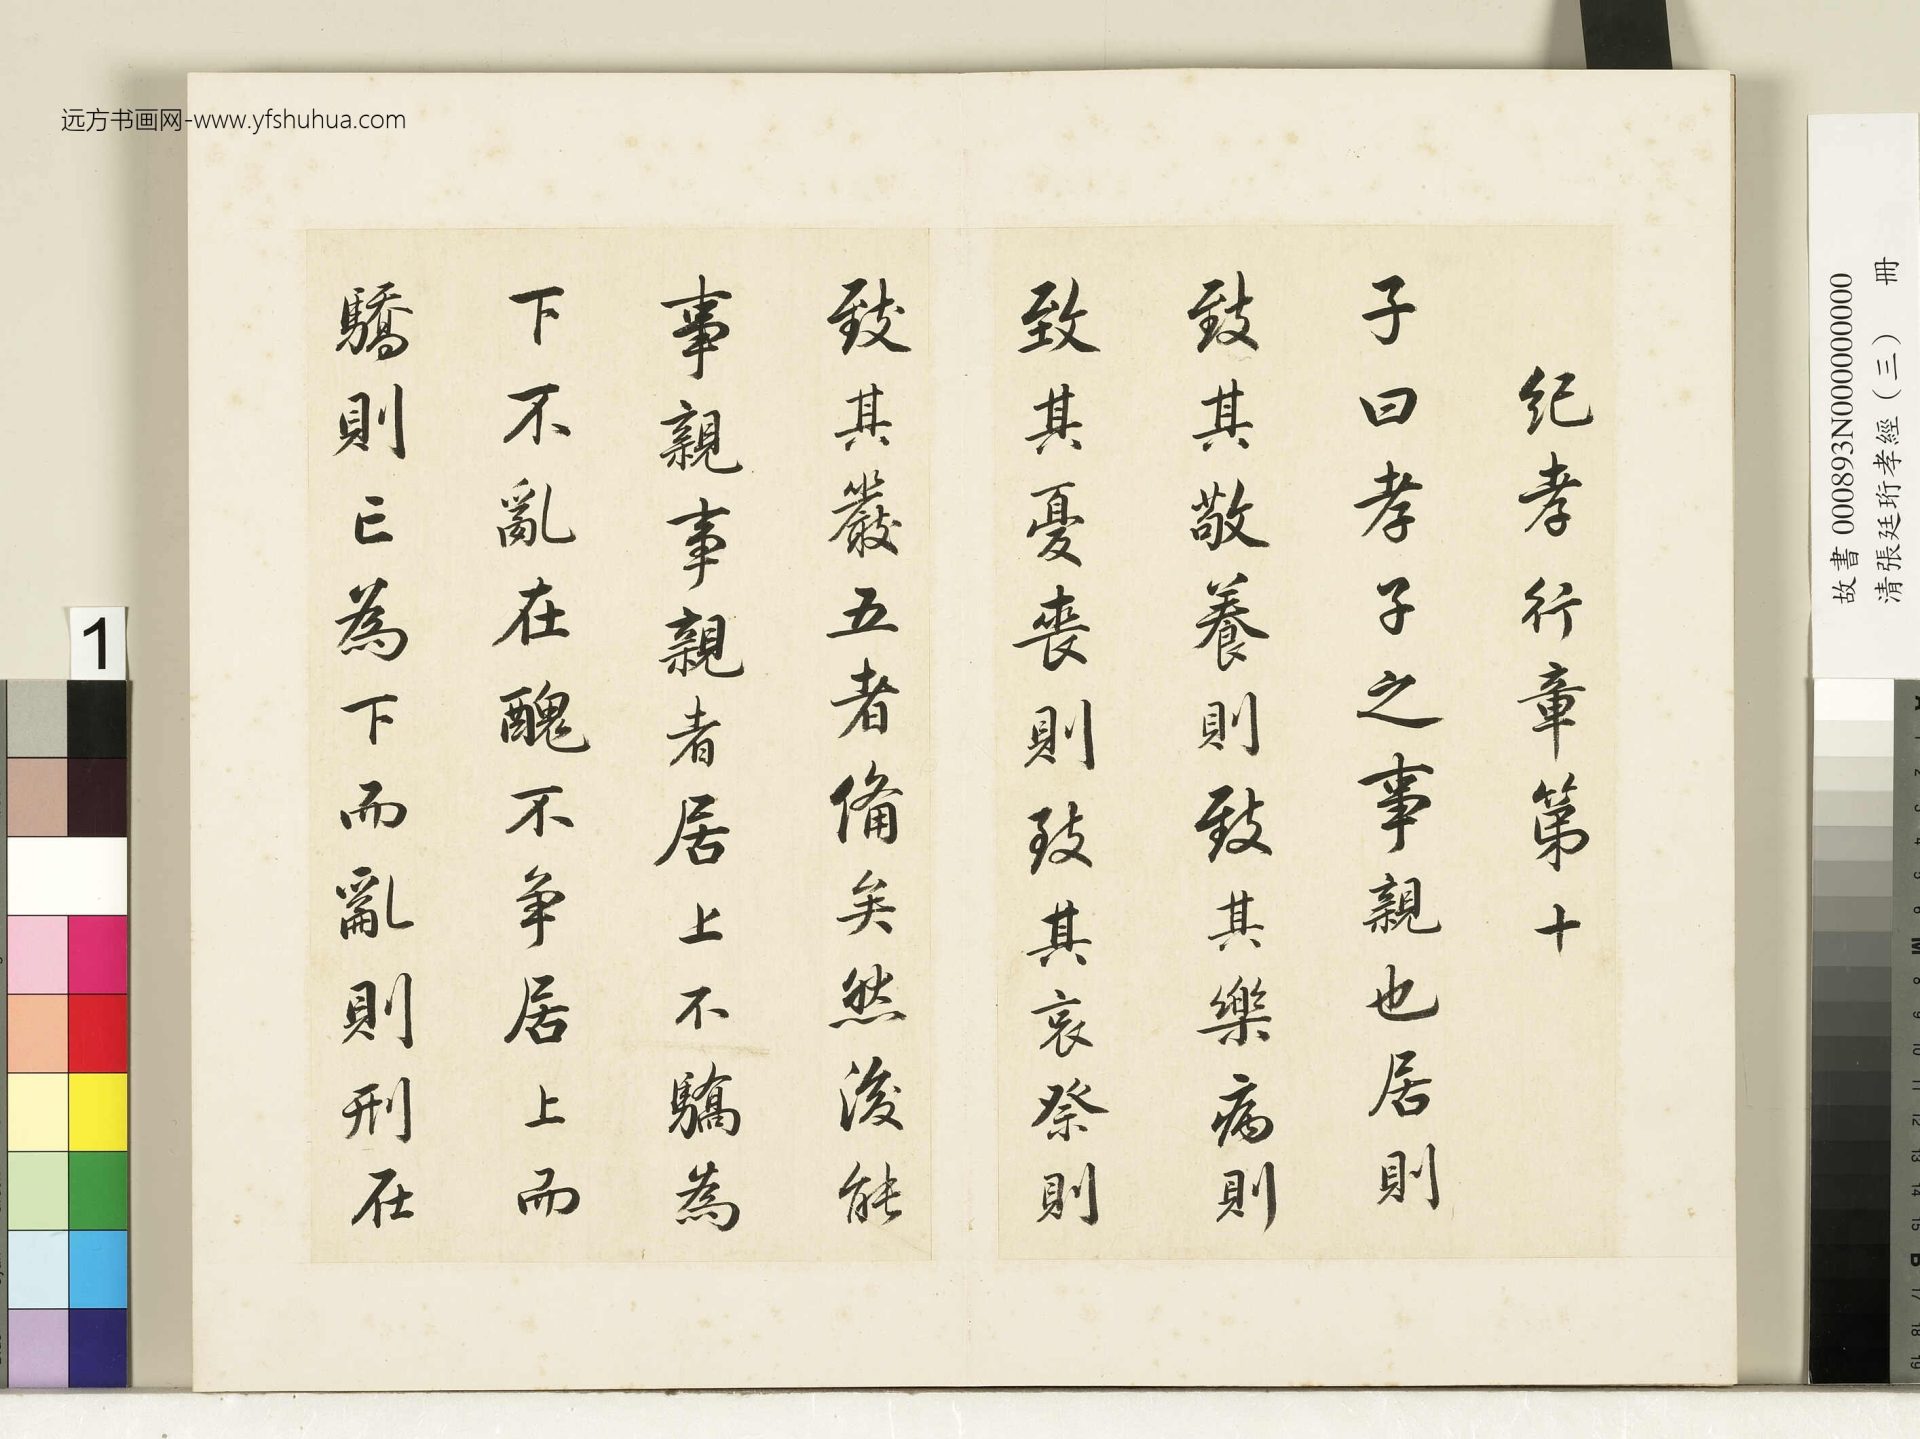 远方书画网-www.yfshuhua.com
紀孝行章第十
子曰孝子之事親也居則
致其敬養則致其樂病則
致其憂喪則致其哀祭則
致其嚴五者備矣然後能
事親事親者居上不驕為
下不亂在醜不爭居上而
驕則亡為下而亂則刑在
故書 000893N000000000
清張廷珩孝經（三） 冊
1